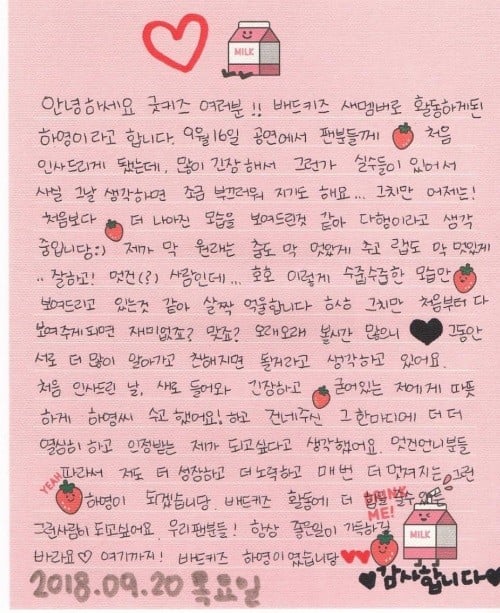 MILK
안녕하세요 굿키즈 여러분!! 배드키즈 새멤버로 활동하게된
하영이라고 합니다. 9월16일 공연에서 팬분들께 처음
인사드리게 됐는데, 많이 긴장해서 그런가 실수들이 있어서
사실 그날 생각하면 조금 부끄러워 지기도 해요... 그치만 어제는!
처음보다 더 나아진 모습을 보여드린것 같아 다행이라고 생각
중입니당:) 제가 막 원래는 춤도 막 멋있게 추고 랩도 막 멋있게
.. 잘하고! 멋건(?) 사람인데... 호호 이렇게 수줍수줍한 모습만
보여드리고 있는것 같아 살짝 억울합니다 하하 그치만 처음부터 다
보여주게되면 재미없죠? 맞죠? 오래오래 볼시간 많으니 그동안
서로 더 많이 알아가고 친해지면 될거라고 생각하고 있어요.
처음 인사드린 날, 새로 들어와 긴장하고 굳어있는 저에게 따뜻
하게 하영씨 수고했어요! 하고 건네주신 그 한마디에 더 더
열심히 하고 인정받는 제가 되고싶다고 생각했어요. 멋건언니분들
YEAH 따라서 저도 더 성장하고 더 노력하고 매번 더 멋져지는 그런
하영이 되겠습니당. 배드키즈 활동에 더 힘을 실을 수 있는
DRINK ME!
그런사람이 되고싶어요. 우리 팬분들! 항상 좋은일이 가득하길
MILK
바라요♡ 여기까지! 배드키즈 하영이였습니당 ♥♥
2018.09.20 목요일 ♥감사합니다♥